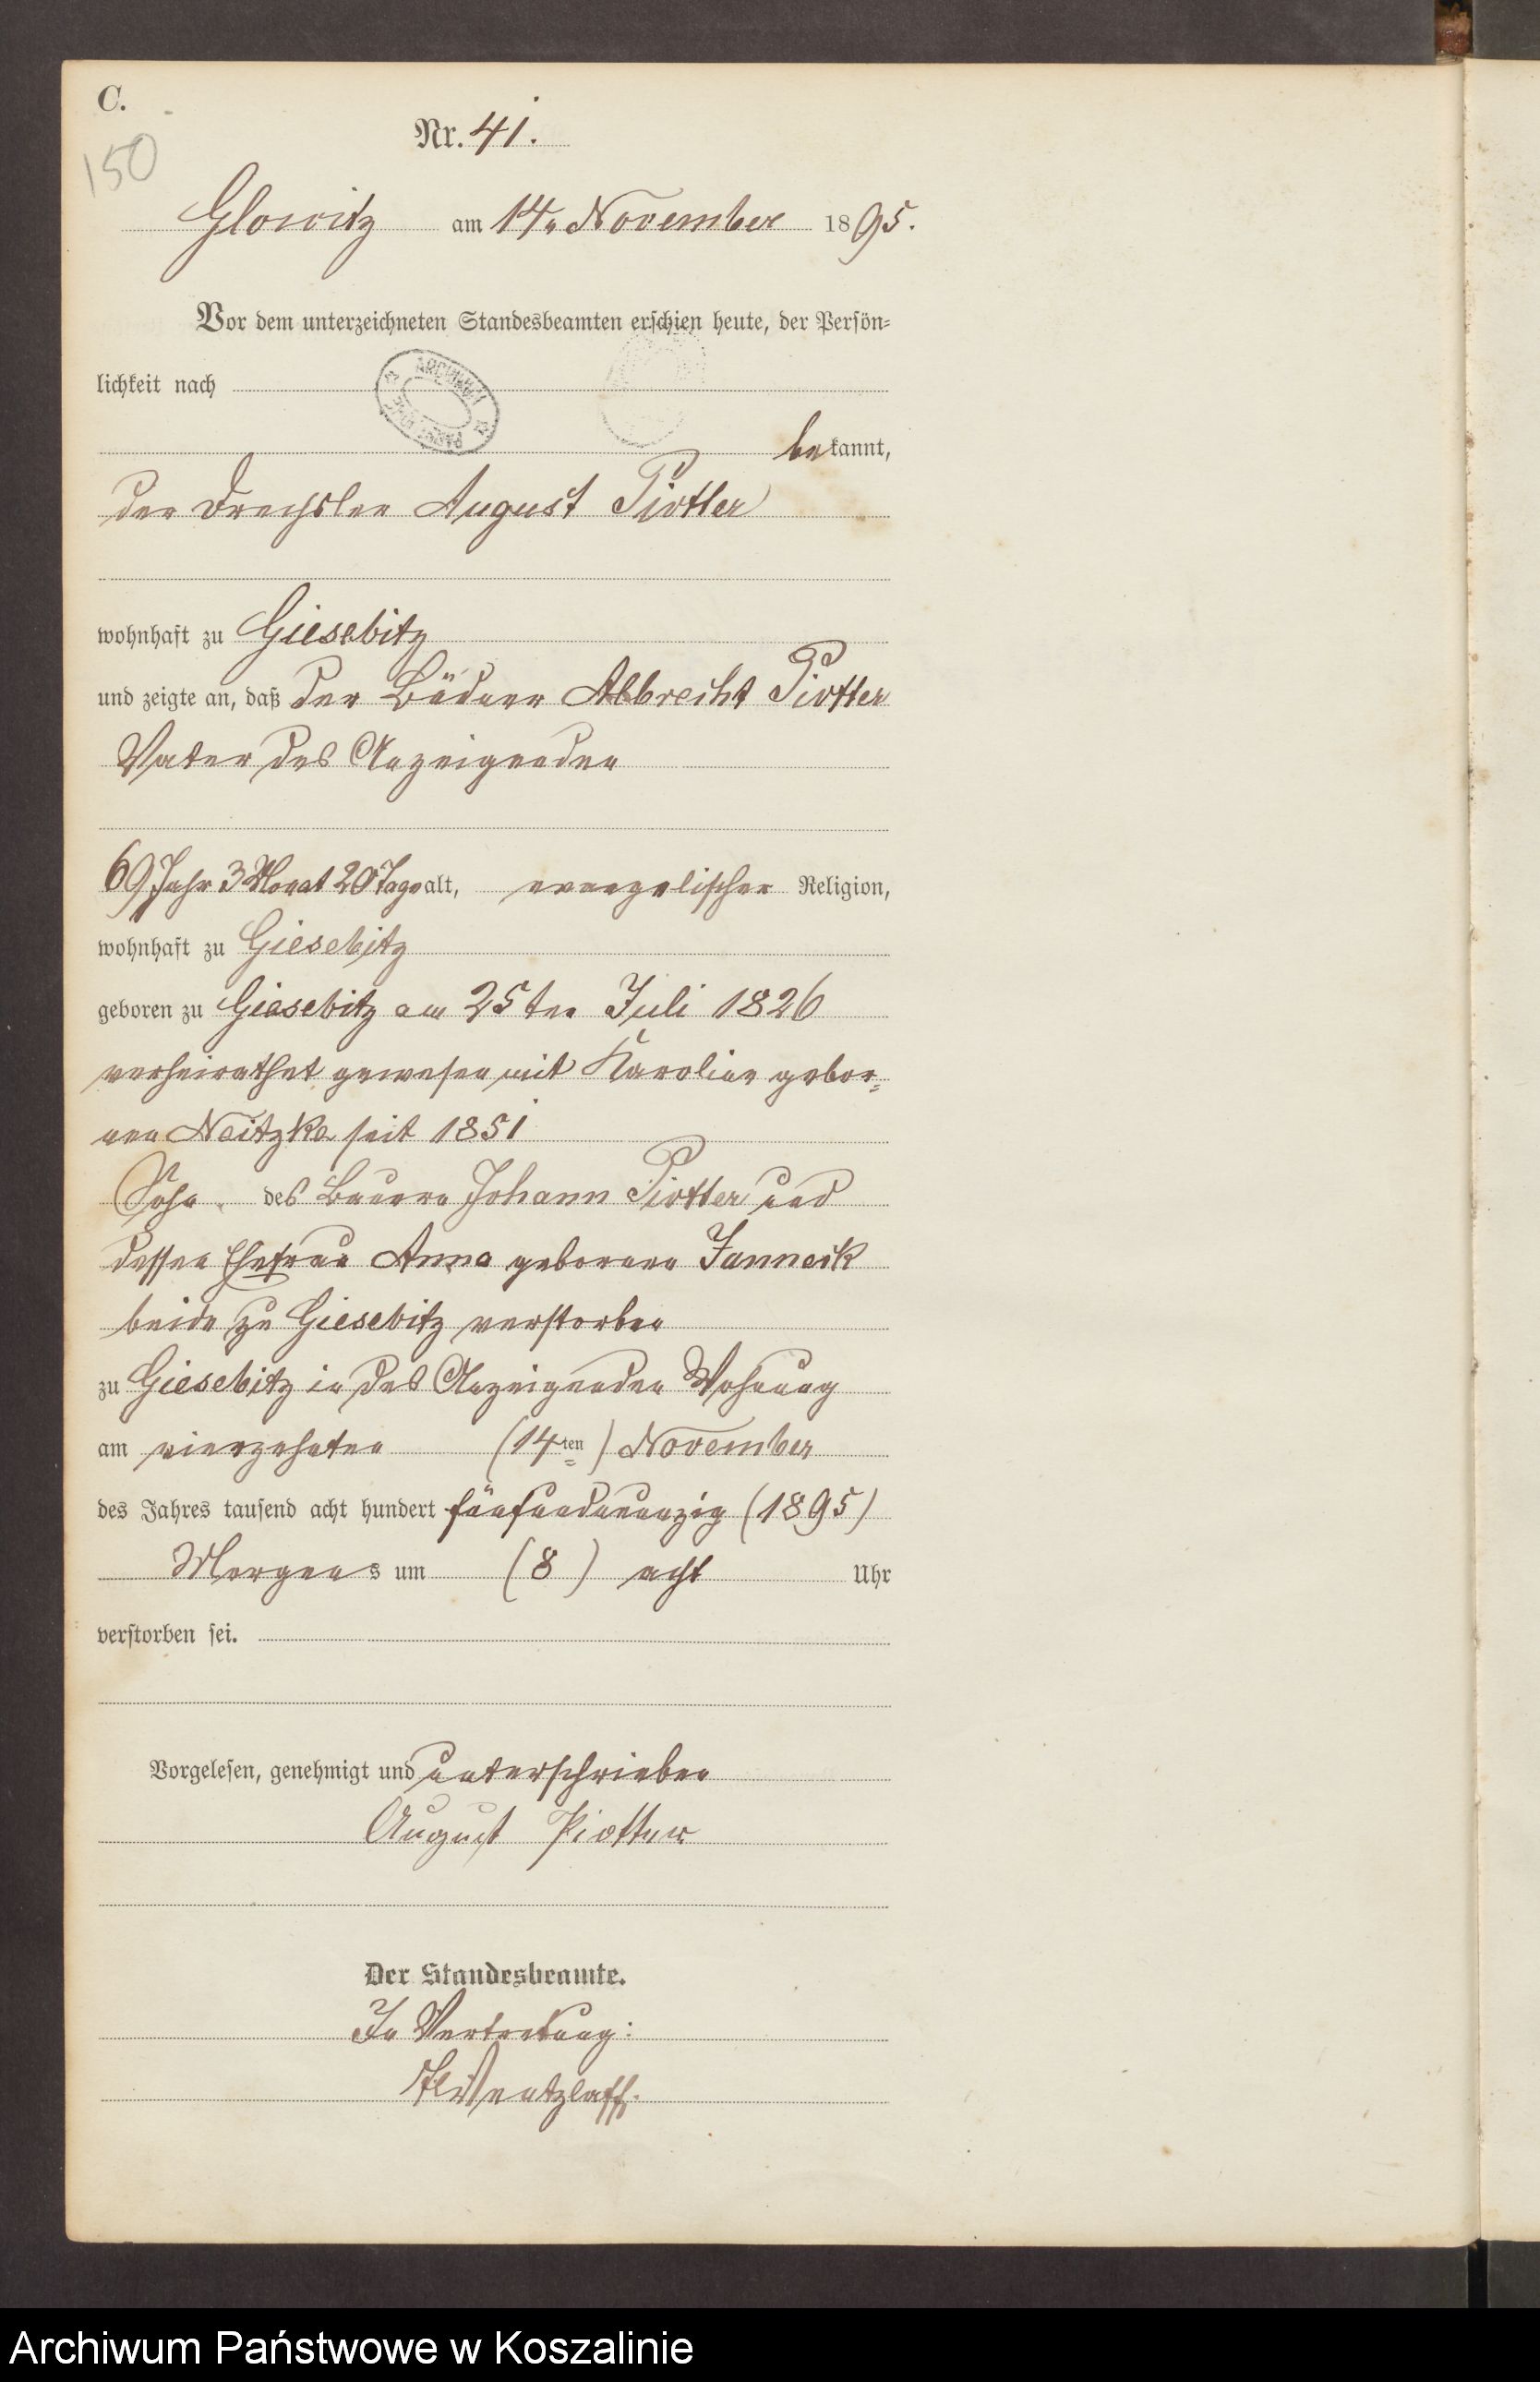 C.
150
Nr. 41.
Glowitz am 14. November 1895.
Vor dem unterzeichneten Standesbeamten erschien heute, der Persön-
lichkeit nach
bekannt,
der Drechsler August Piotter
wohnhaft zu Giesebitz
und zeigte an, daß der Büdner Albrecht Piotter
Vater des Anzeigenden
69 Jahr 3 Monat 20 Tage alt, evangelischer Religion,
wohnhaft zu Giesebitz
geboren zu Giesebitz am 25ten Juli 1826
verheirathet gewesen mit Karoline gebor-
nen Neitzke seit 1851
Sohn des Bauern Johann Piotter und
dessen Ehefrau Anna geborene Janneck
beide zu Giesebitz verstorben
zu Giesebitz in des Anzeigenden Wohnung
am vierzehnten (14ten) November
des Jahres tausend acht hundert fünfundneunzig (1895)
Morgens um (8) acht Uhr
verstorben sei.
Vorgelesen, genehmigt und unterschrieben
August Piotter
Der Standesbeamte.
In Vertretung:
Wentzlaff.
Archiwum Państwowe w Koszalinie